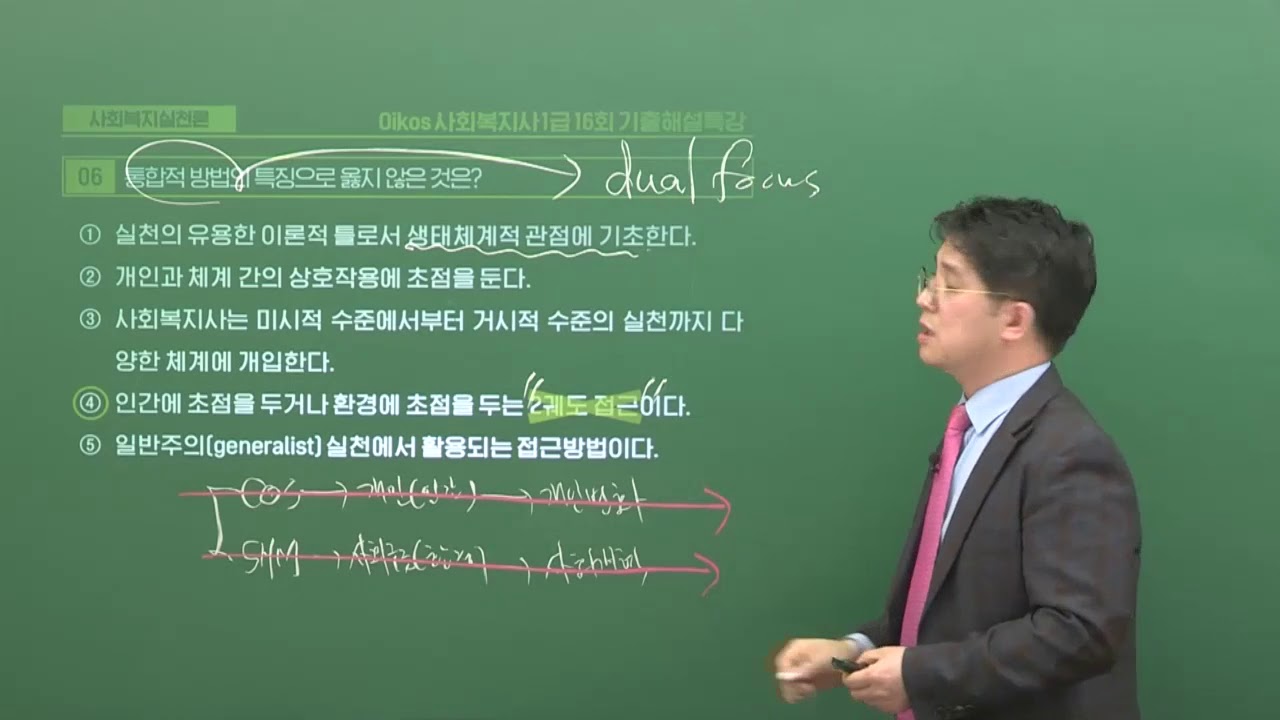 사회복지실천론
Oikos 사회복지사1급 16회 기출해설특강
06 통합적 방법의 특징으로 옳지 않은 것은? dual focus
① 실천의 유용한 이론적 틀로서 생태체계적 관점에 기초한다.
② 개인과 체계 간의 상호작용에 초점을 둔다.
③ 사회복지사는 미시적 수준에서부터 거시적 수준의 실천까지 다
양한 체계에 개입한다.
④ 인간에 초점을 두거나 환경에 초점을 두는 "2궤도 접근"이다.
⑤ 일반주의(generalist) 실천에서 활용되는 접근방법이다.
COS → 개인(인간) → 개인변화
SHM → →